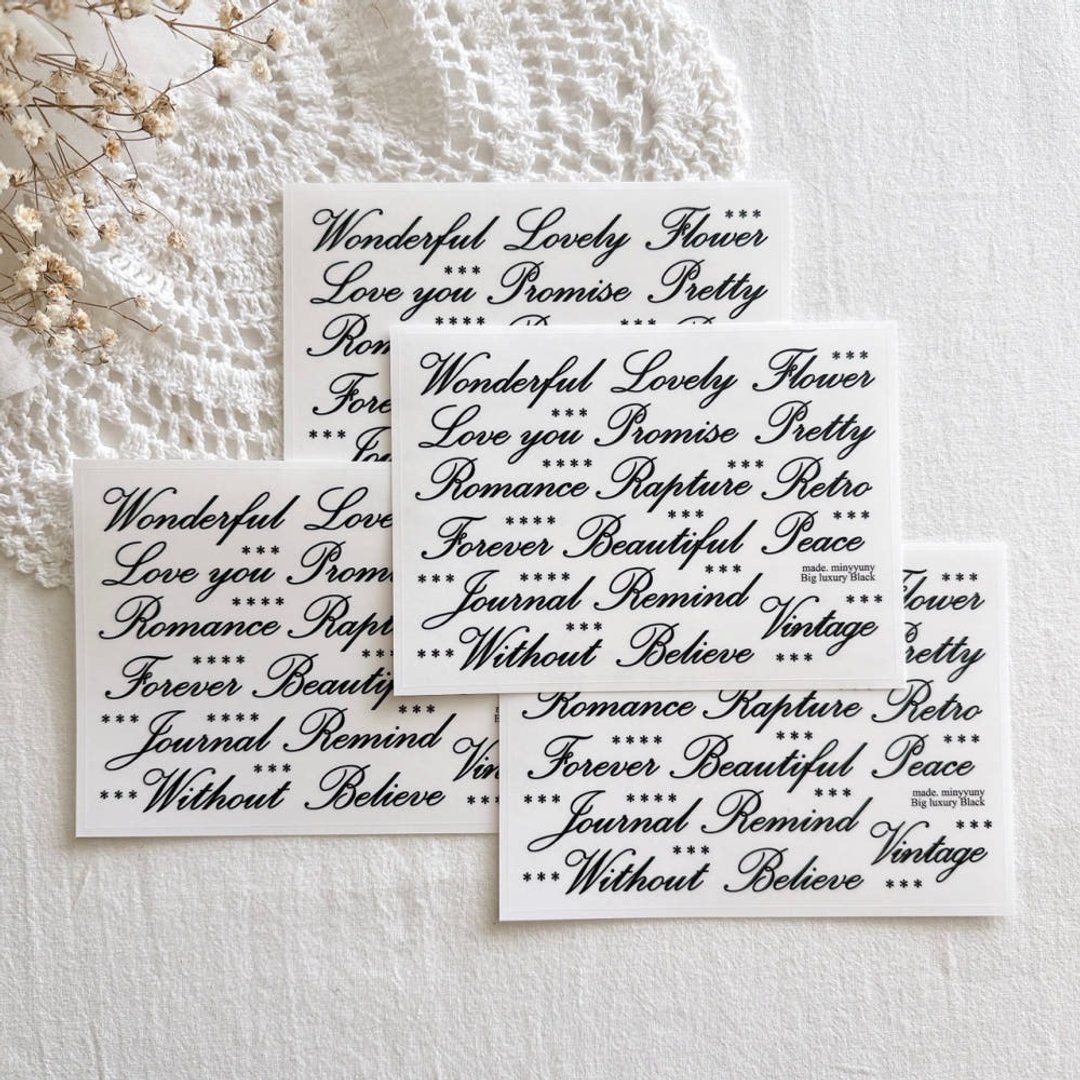 Wonderful Lovely Flower ***
Love you *** Promise Pretty
**** ***
Wonderful Lovely Flower ***
Love you *** Promise Pretty
Romance **** Rapture *** Retro
Forever **** Beautiful *** Peace ***
made. minyyuny
Big luxury Black
*** Journal **** Remind ***
*** Without *** Believe Vintage *** ***
Wonderful
Love you ***
Romance ****
Forever **** ***
*** Journal **** Remind ***
*** Without *** Believe ***
***
Romance Rapture Retro
Forever **** Beautiful *** Peace ***
made. minyyuny
Big luxury Black
*** Journal **** Remind ***
*** Without *** Believe Vintage *** ***